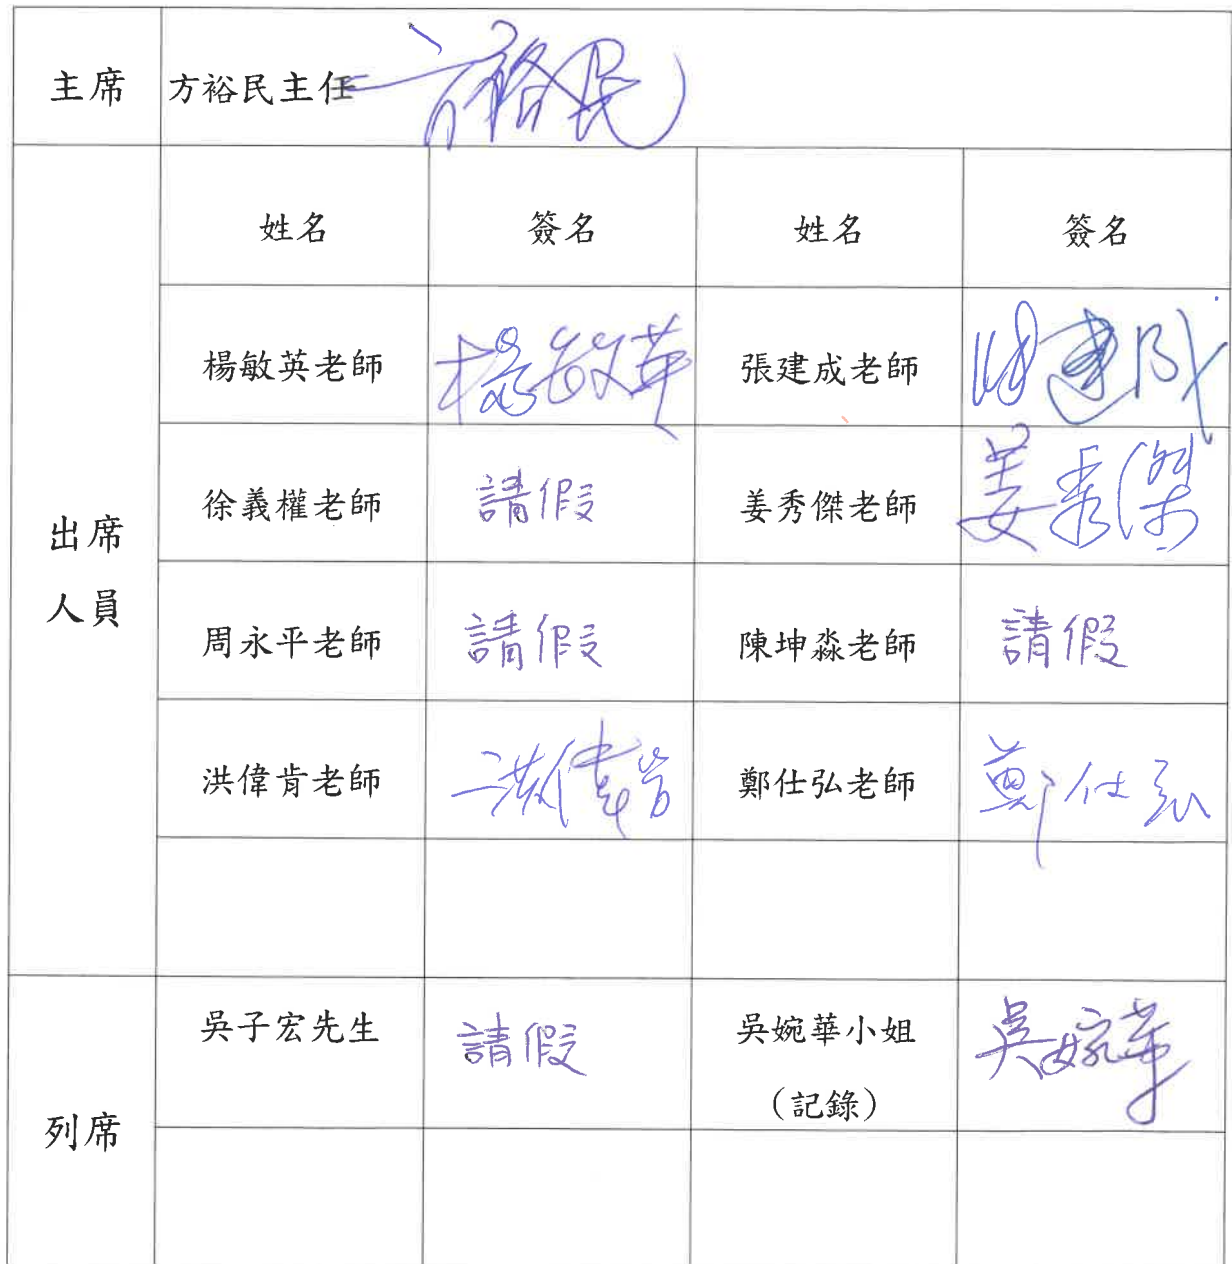 主席 方裕民主任 方裕民
姓名 簽名 姓名 簽名
楊敏英老師 楊敏英 張建成老師 張建成
徐義權老師 請假 姜秀傑老師 姜秀傑
出席
人員
周永平老師 請假 陳坤淼老師 請假
洪偉肯老師 洪偉肯 鄭仕弘老師 鄭仕弘
吳子宏先生 請假 吳婉華小姐 吳婉華
（記錄）
列席